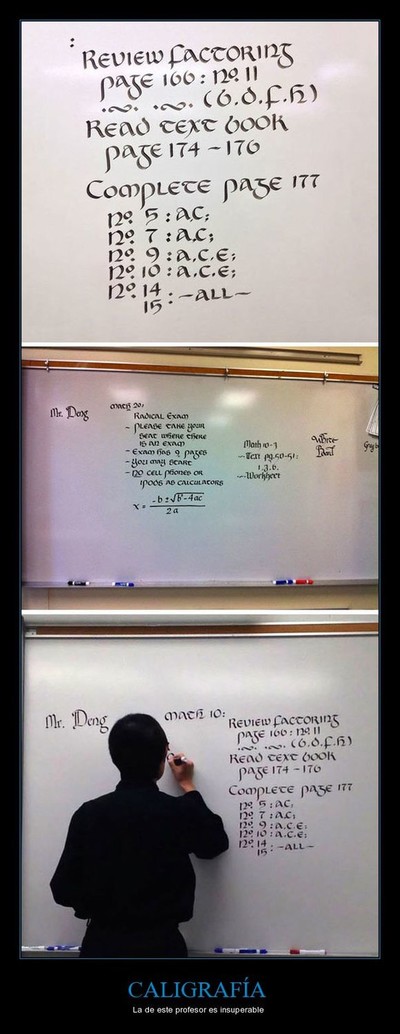 :
Review factoring
page 166: no. 11
.~. .~. (b.d.f.h)
Read text book
page 174 - 176
Complete page 177
no. 5 : a.c;
no. 7 : a.c;
no. 9 : a.c.e;
no. 10 : a.c.e;
no. 14
15 : -all-
Mr. Deng
math 20:
Radical Exam
- please take your
seat where there
is an exam
- Exam has 9 pages
- you may start
- no cell phones or
ipods as calculators
x = -b ± √b²-4ac
2a
Math 10-3
- Text pg.50-51:
1.3.6.
- Worksheet
White
Mr. Deng
math 10:
Review factoring
page 166: no. 11
.~. .~. (b.d.f.h)
Read text book
page 174 - 176
Complete page 177
no. 5 : a.c;
no. 7 : a.c;
no. 9 : a.c.e;
no. 10 : a.c.e;
no. 14
15 : -all-
CALIGRAFÍA
La de este profesor es insuperable